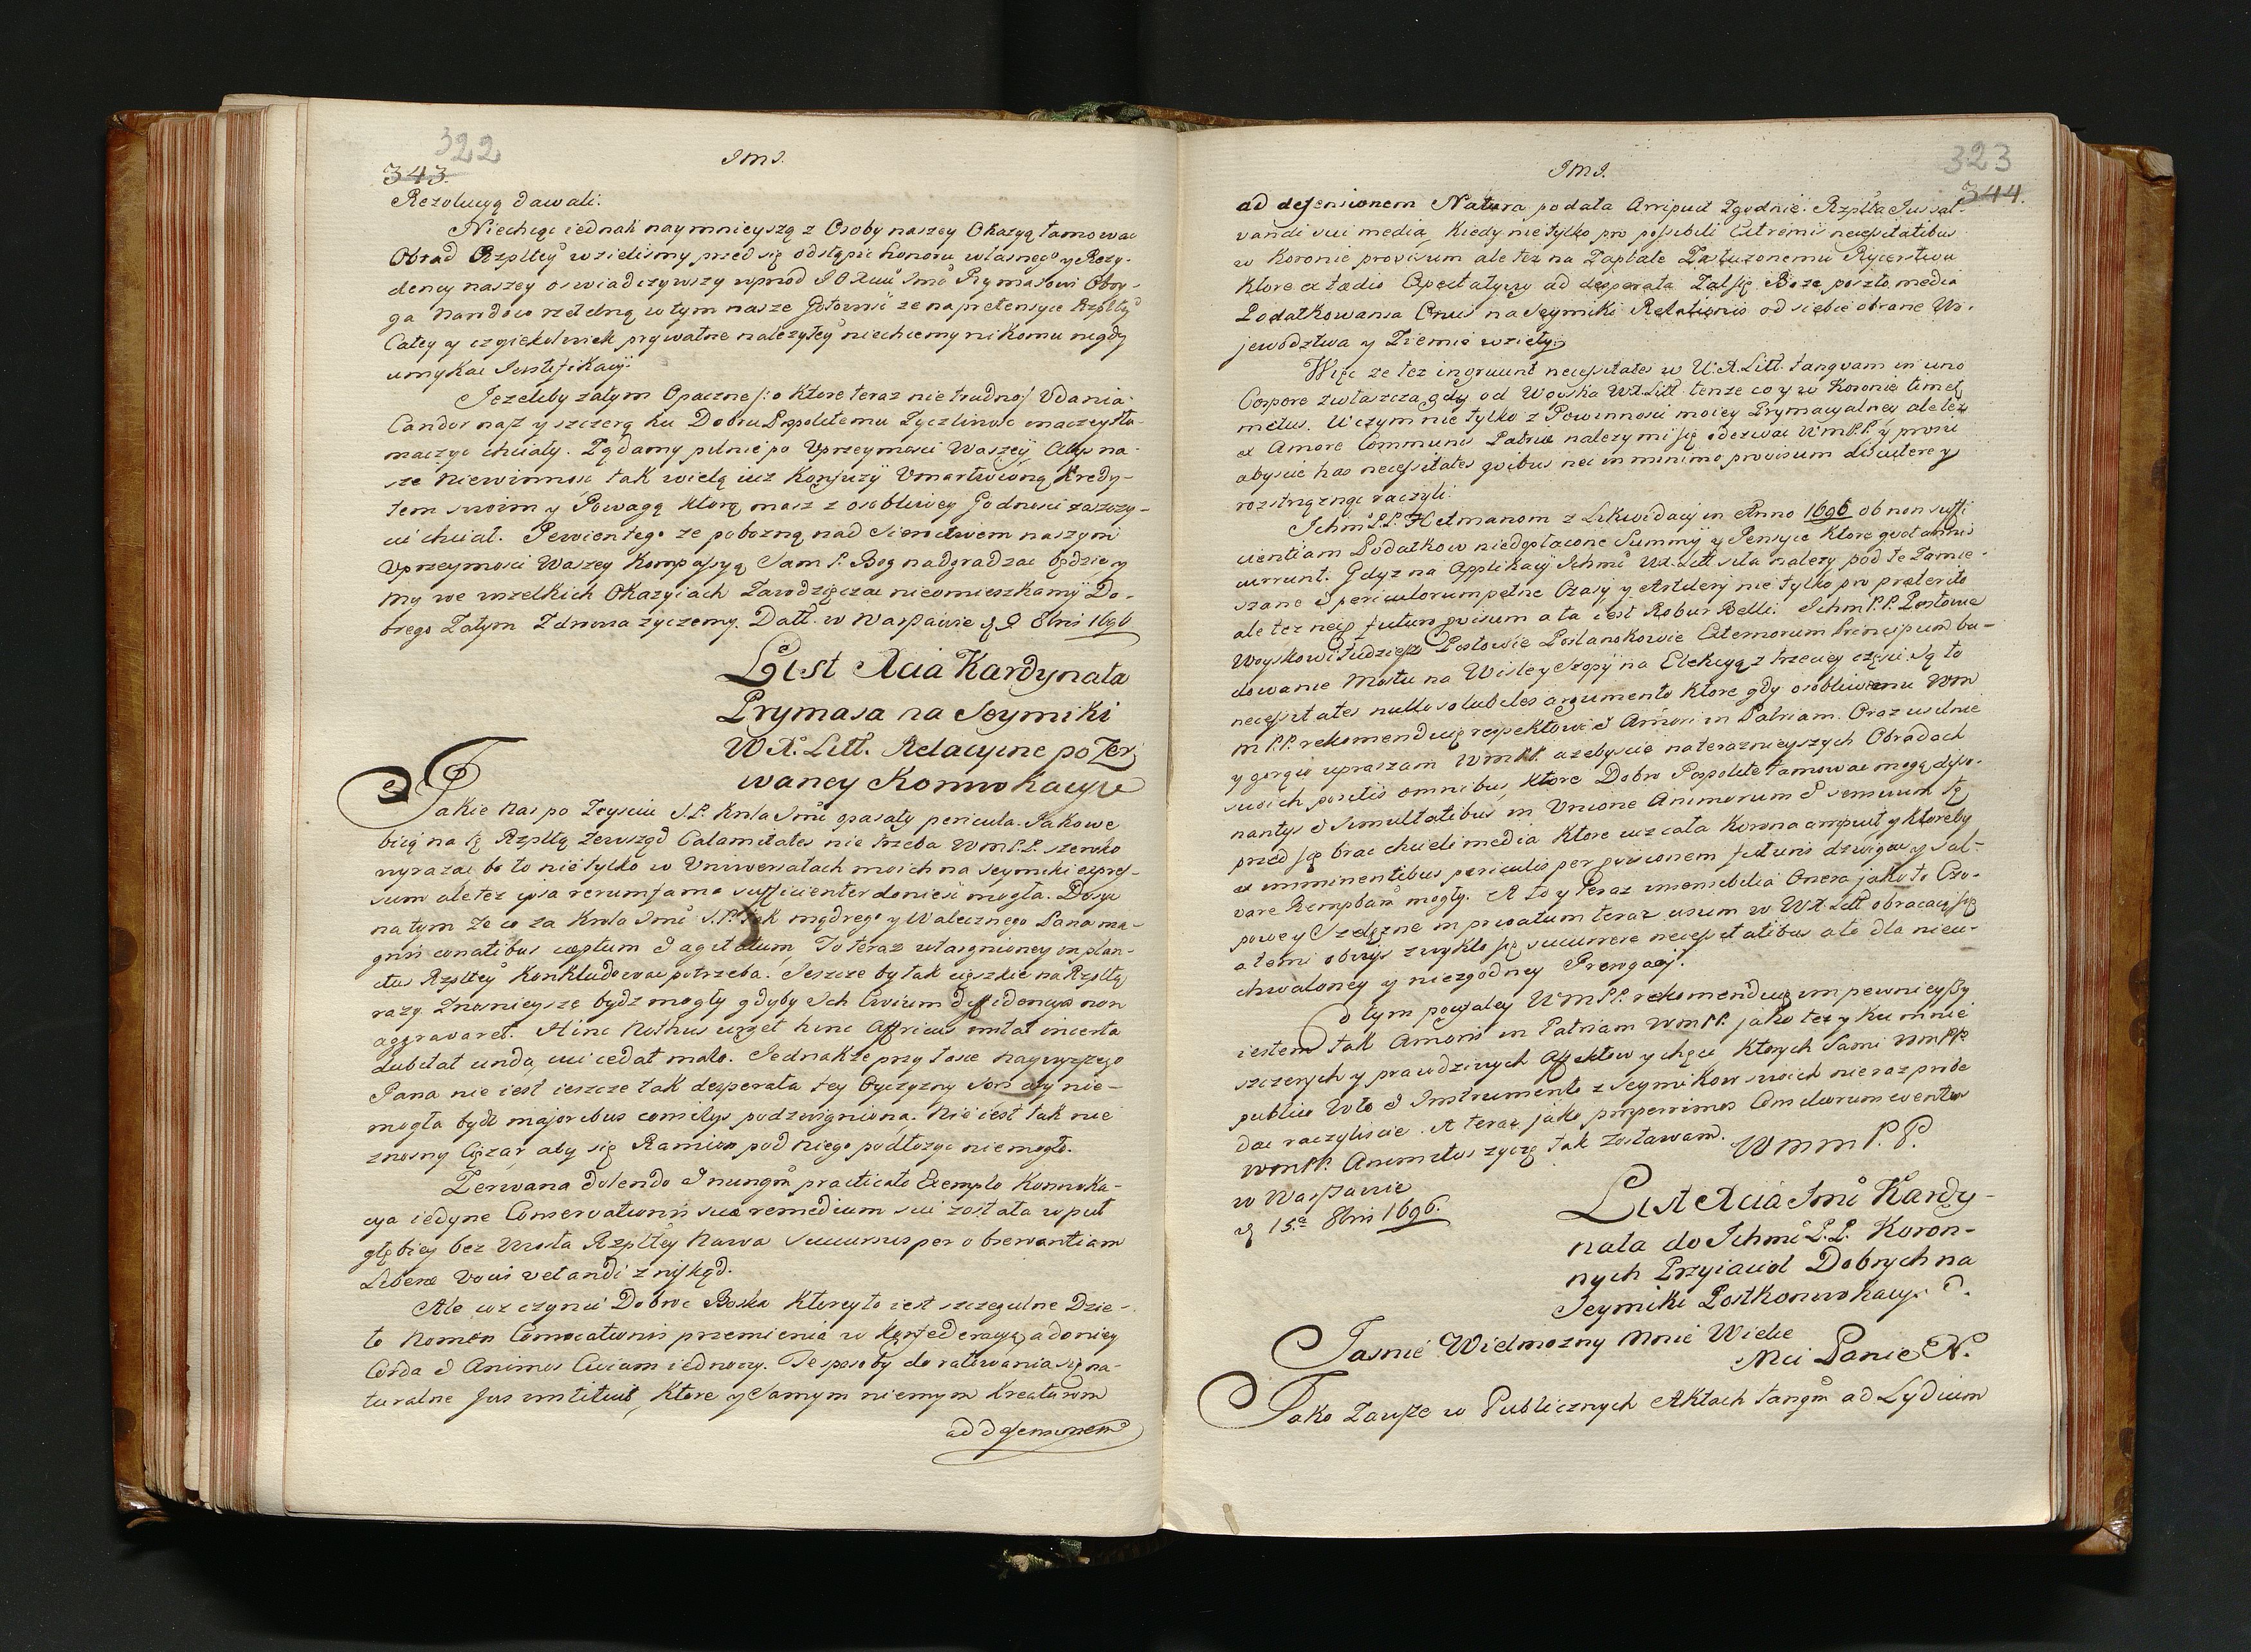 322
343.
JMJ.
Rezolucyą dawali.
Niechcąc iednak naymnieyszą z Osoby naszey Okazyą tamowac
Obrad Rzpltey wzielismy przed się odstąpic honoru własnego y Rezy-
dency naszey oswiadczywszy wprzod JOXciu Jmc Prymasowi Oboy-
ga Narodow rzetelną w tym nasze Gotowość ze na pretensye Rzpltey
Całey y czyiekolwiek prywatne nalezytey niechcemy nikomu nigdy
umykac Justyfikacyi.
Jezeliby zatym Opaczne o które teraz nie trudno Udania
Candor nasz y szczerą ku Dobru Pospolitemu Zyczliwosc inaczey tło-
maczyc chciały. Ządamy pilnie po Uprzeymosci Waszey Abys na-
sze Niewinnosc tak wielą iuz Konfuzyi Umartwioną Kredy-
tem swoim y Powagą ktorą masz z osobliwey Godnosci zaszczy-
cic chciał. Pewien tego ze pobozną nad Sieroctwem naszym
Uprzeymosci Waszey Kompassyą Sam P. Bog nadgradzac będzie y
My we wszelkich Okazyiach Zawdzięczac nieomieszkamy Do-
brego Zatym Zdrowia zyczemy. Datt. w Warszawie d 9 8bris 1696
List Xcia Kardynała
Prymasa na Seymiki
W.X. Litt. Relacyine po Zer
waney Konwokacyi
Jakie nas po Zeysciu S.P. Krola Jmci opasały pericula. Jakowe
biią na tę Rzpltą Zewsząd Calamitates nie trzeba WMPP. szeroko
wyrazac bo to nie tylko w Uniwersałach moich na Seymiki expres-
sum ale tez ipsa rerum fama sufficienter doniesc mogła. Dosyc
na tym Ze co za Krola Jmci S.P. tak mądrego y Walecznego Pana ma-
gnis conatibus cæptum & agitatum, To teraz w
ctus Rzpltey Konkludowac potrzeba. Jeszcze by tak cięszkie na Rzpltą
razy Znosnieysze bydz mogły gdyby Ich Civium diffidencya non
aggravaret. Hinc Nothus urget hinc Affricus instat incerta
dubitat unda cui cedat malo. Jednakze przy łasce naywyzszego
Pana nie iest ieszcze tak desperata tey Oyczyzny Sors aby nie-
mogła bydz majoribus consilys podzwigniona. Nie iest tak nie
znosny Cięzar aby się Ramion pod niego podłozyc niemogło.
Zerwana dolendo & nunqm practicato Exemplo Konwoka-
cya iedyne Conservationis suæ remedium sui została w puł
głębiey bez Wiosła Rzpltey Nawa Succursus per obserwantiam
Liberæ Vocis vetandi znikąd.
Ale uz czynic Dobroc Boska Ktorey to iest szczegulne Dzie-
ło Nomen Convocationis przemienia w Konfederacyą, a do niey
Corda & Animos Civium iednoczy. Te sposoby do ratowania się na-
turalne Jus instituit, Ktore y Samym niemym Kreaturom
ad defensionem
JMJ.
323
344.
ad defensionem Natura podała Arripuit Zgodnie Rzplta Jus sal-
vandi sui media, Kiedy nie tylko pro possibili Extremis necessitatibus
w Koronie provisum ale tez na Zapłate Zasłuzonemu Rycerstwu
Ktore ex tædio Expectatywy ad desperata Zal się Boze poszło media
Podatkowania Onus na Seymiki Relationis od siebie obrane Wo-
jewodztwa y Ziemie wzieły.
Więc ze tez ingruunt necessitates w W.X. Litt. tanquam in uno
Corpore zwłaszcza gdy od Woyska WX. Litt. tenze co y w Koronie timet
metus. Uczym nie tylko z Powinnosci moiey Prymacyalney, ale tez
ex Amore Communis Patriæ nalezy mi się odezwac WMPP. y prosic
abyscie has necessitates quibus nec in minimo provisum discutere y
rozstrząznąc raczyli.
Ichm PP. Hetmanom z Likwidacyi in Anno 1696 ob non suffi
cientiam Podatkow niedopłacone Summy y Pensye Ktore quotannis
currunt. Gdyz na Applikacyi Ichmc WX. Litt. siła nalezy pod te Zamie-
szane & periculorum pełne Czasy y Artylery nie tylko pro præterito
ale tez nec futuro provisum a ta iest Robur Belli. Ichm PP. Posłowie
Woyskowi tudziesz Posłowie Posłankowie Externorum Principum bu-
dowanie Mostu na Wisley Szopy na Elekcyą z trzeciey częsci. Są to
necessitates nullo solubiles argumento Ktore gdy osobliwemu WM
MPP. rekomenduię respektowi & Amori in Patriam. Oraz usilnie
y gorąco upraszam WMPP. azebyscie na teraznieyszych Obradach
swoich positis omnibus, ktore Dobro Pospolite tamowac mogą disso-
nantys & Simultatibus in Unione Animorum & sensuum tę
przed się brac chcieli media Ktore iuz cała Korona arripuit y ktoreby
ex imminentibus periculis per provisionem futuris dzwigac y sal-
vare Rempbam mogły. A to y teraz insensibilia Onera jako to Czo-
powey Szelęzne in privatum teraz usum w WX. Litt. obracaią się
a temi obviys zwykło się succurrere necessitatibus ale dla nieu-
chwaloney y niezgodney Prorogacyi.
O tym powaley WMPP. rekomenduię im pewnieyszy
iestem tak Amoris in Patriam WMPP. jako tez y ku mnie
szczerych y prawdziwych Affektow y chęci, Ktorych Sami WMPP.
publico Voto & Instrumento z Seymikow swoich nieraz probe
dac raczyliscie. A teraz jako prosperrimos Consiliorum eventus
WMPP. Animitus zyczę tak Zostawam. WMM P. P.
w Warszawie
d 15a 8bris 1696.
List Xcia Jmci Kardy-
nała do Ichmci P.P. Koron-
nych Przyiacioł Dobrych na
Seymiki Postkonwokacy.
Jasnie Wielmozny Mnie Wielce
Mci Panie N.
Jako Zawsze w Publicznych Aktach tanqm ad Lydium